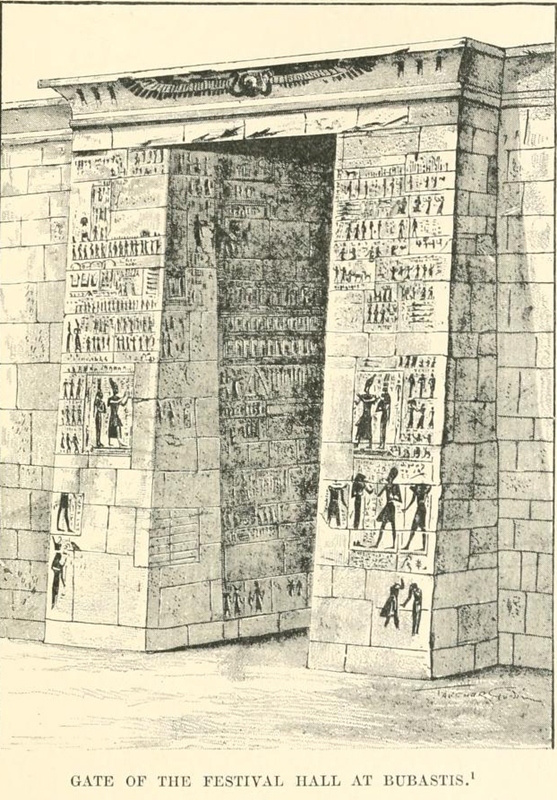 GATE OF THE FESTIVAL HALL AT BUBASTIS.¹